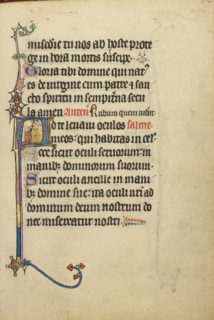 misedie tu nos ab hoste prote
ge in hora mortis suscipe.
Gloria tibi domine qui nat'
es de virgine cum patre & san
cto spiritu in sempit'na secu
la amen
Ad te levavi oculos
meos: qui habitas in cel'
Ecce sicut oculi servorum: in
manib; dominorum suorum.
Sicut oculi ancille in mani
b; domine sue: ita oculi nri ad
dominum deum nostrum do
nec misereatur nostri